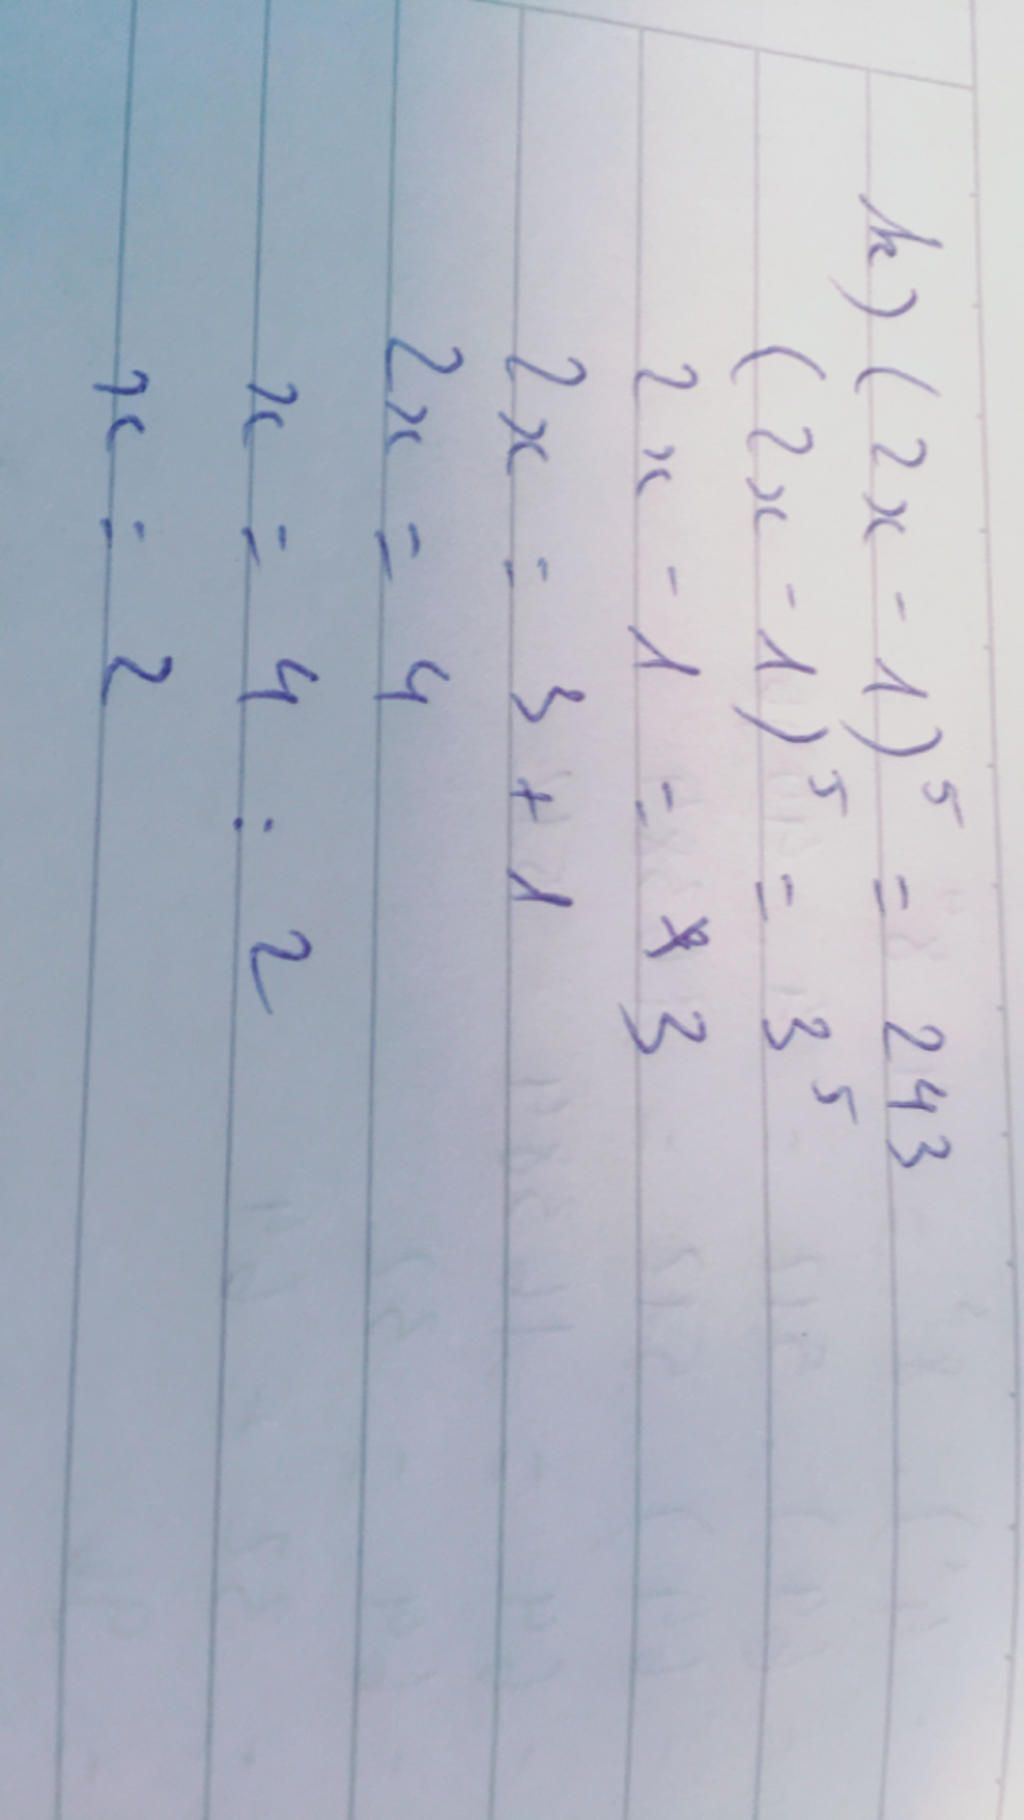 h) (2x - 1)⁵ = 243
(2x - 1)⁵ = 3⁵
2x - 1 = 3
2x = 3 + 1
2x = 4
x = 4 : 2
x = 2